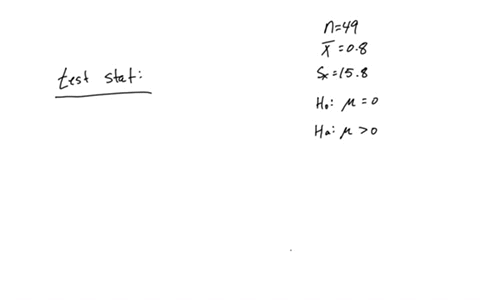 test stat:
n=49
x̄=0.8
Sₓ=15.8
H₀: μ=0
Hₐ: μ>0